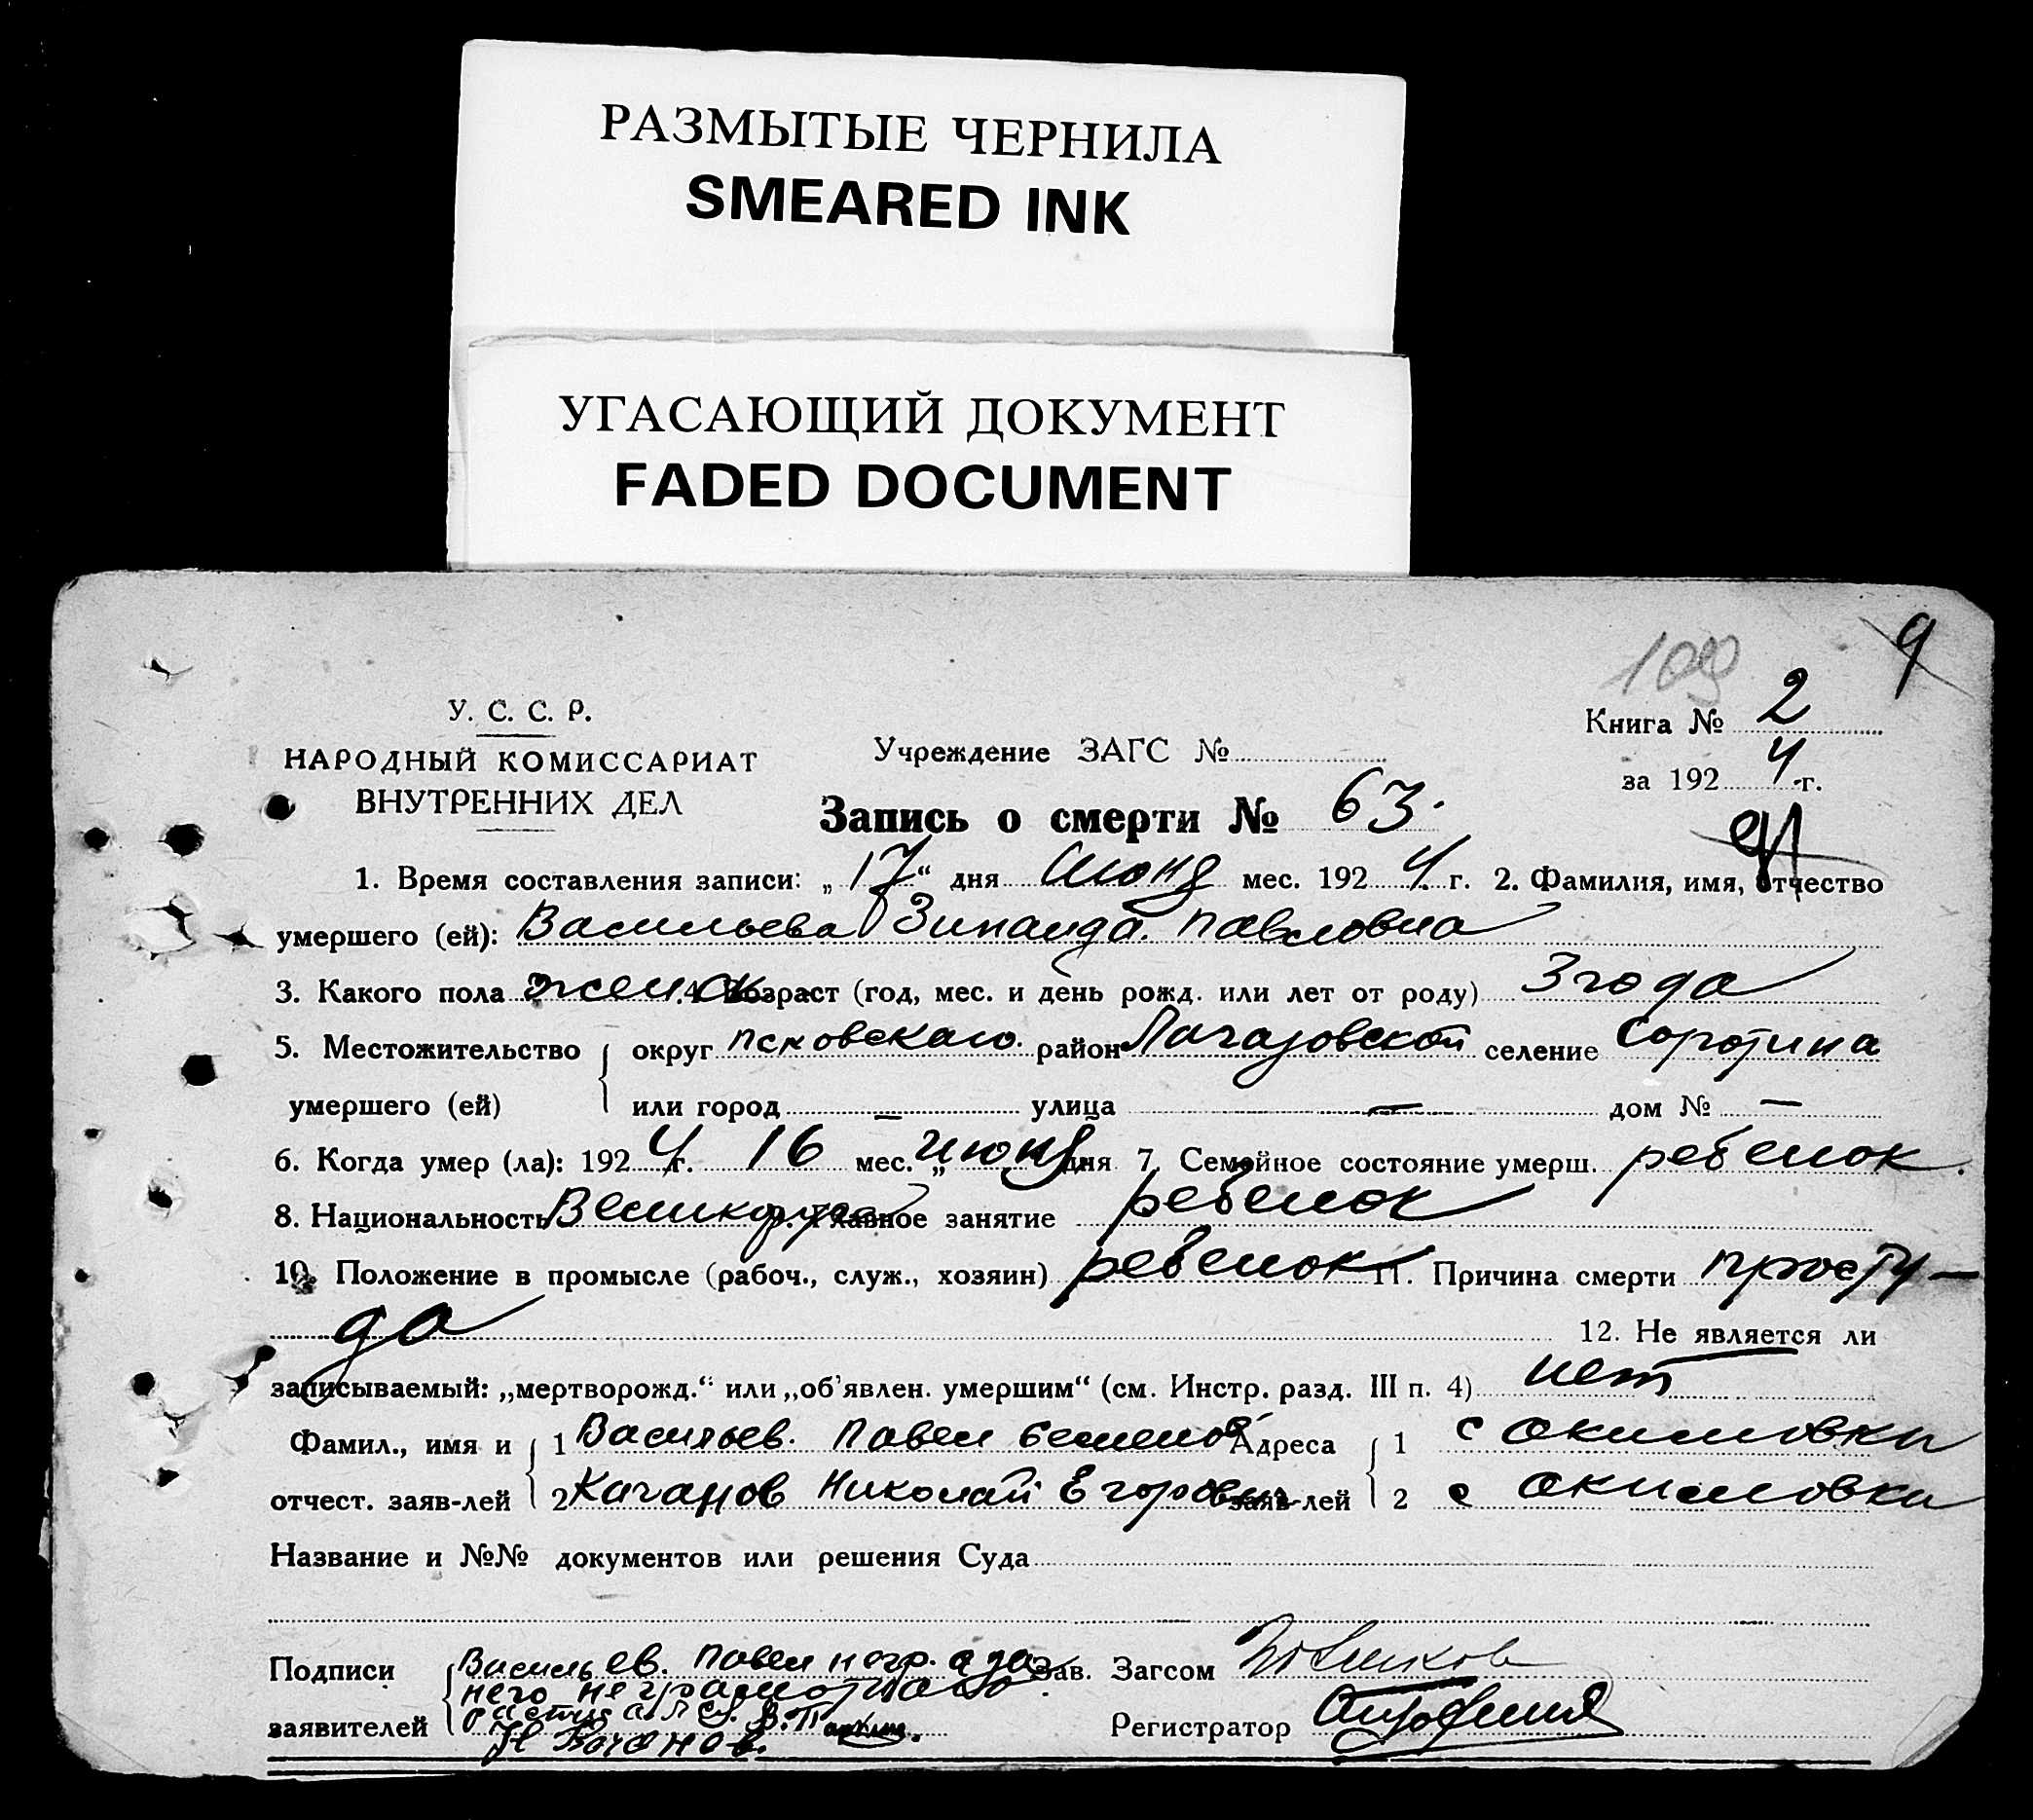 РАЗМЫТЫЕ ЧЕРНИЛА
SMEARED INK
УГАСАЮЩИЙ ДОКУМЕНТ
FADED DOCUMENT
109 9
У. С. С. Р.
НАРОДНЫЙ КОМИССАРИАТ
ВНУТРЕННИХ ДЕЛ
Учреждение ЗАГС №
Книга № 2
за 1924 г.
Запись о смерти № 63.
1. Время составления записи: „17“ дня июня мес. 1924 г. 2. Фамилия, имя, отчество
умершего (ей): Васильева Зинаида Павловна
3. Какого пола женск 4. Возраст (год, мес. и день рожд. или лет от роду) 3 года
5. Местожительство округ псковскаго район селение Соротина
умершего (ей) или город — улица — дом № —
6. Когда умер (ла): 1924 г. 16 мес. „июня дня 7. Семейное состояние умерш. ребенок.
8. Национальность Великорус 9. Главное занятие ребенок
10. Положение в промысле (рабоч., служ., хозяин) ребенок 11. Причина смерти просту-
да 12. Не является ли
записываемый: „мертворожд.“ или „об'явлен. умершим“ (см. Инстр. разд. III п. 4) нет
Фамил., имя и 1 Васильев. Павел Семенов Адреса 1 с Окимовки
отчест. заяв-лей 2 Качанов Николай Егоров заяв-лей 2 с Окимовки
Название и №№ документов или решения Суда
Подписи Васильев. Павел негр. а за Зав. Загсом
него неграмотнаго
заявителей Регистратор
Н Качанов.